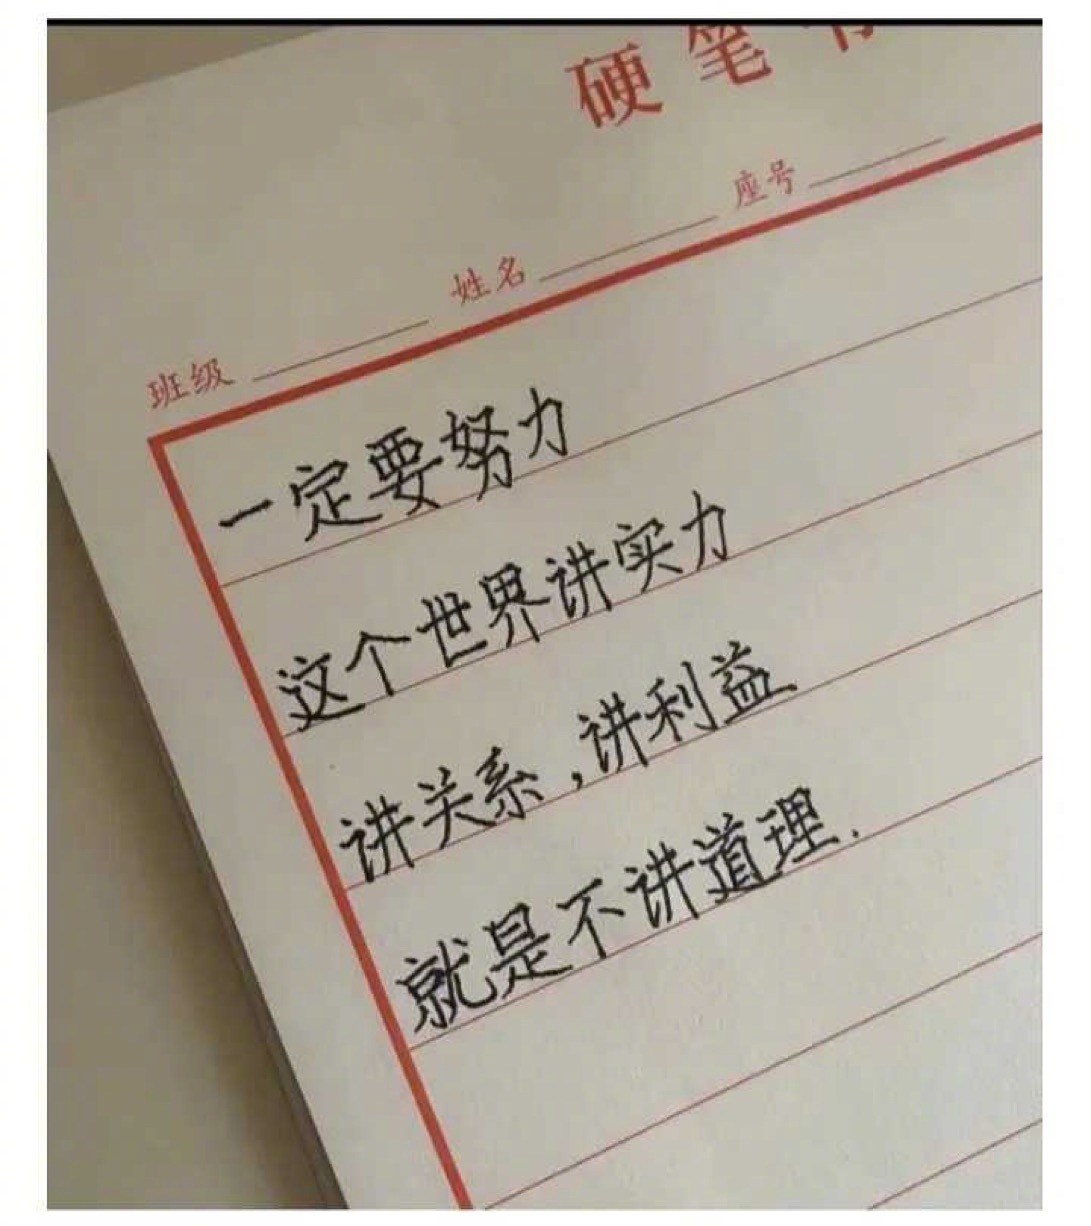 硬笔
班级 姓名 座号
一定要努力
这个世界讲实力
讲关系,讲利益
就是不讲道理.